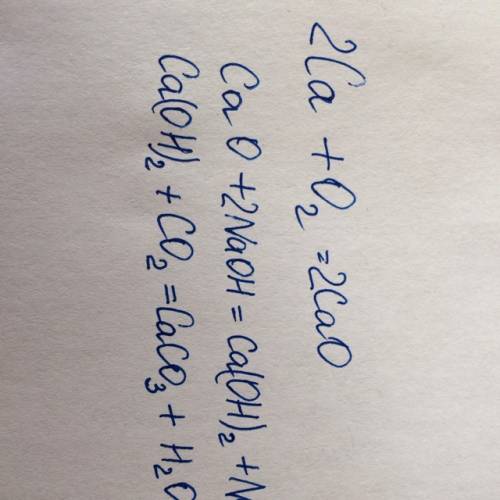 2Ca + O₂ = 2CaO
CaO + 2NaOH = Ca(OH)₂ + N
Ca(OH)₂ + CO₂ = CaCO₃ + H₂O